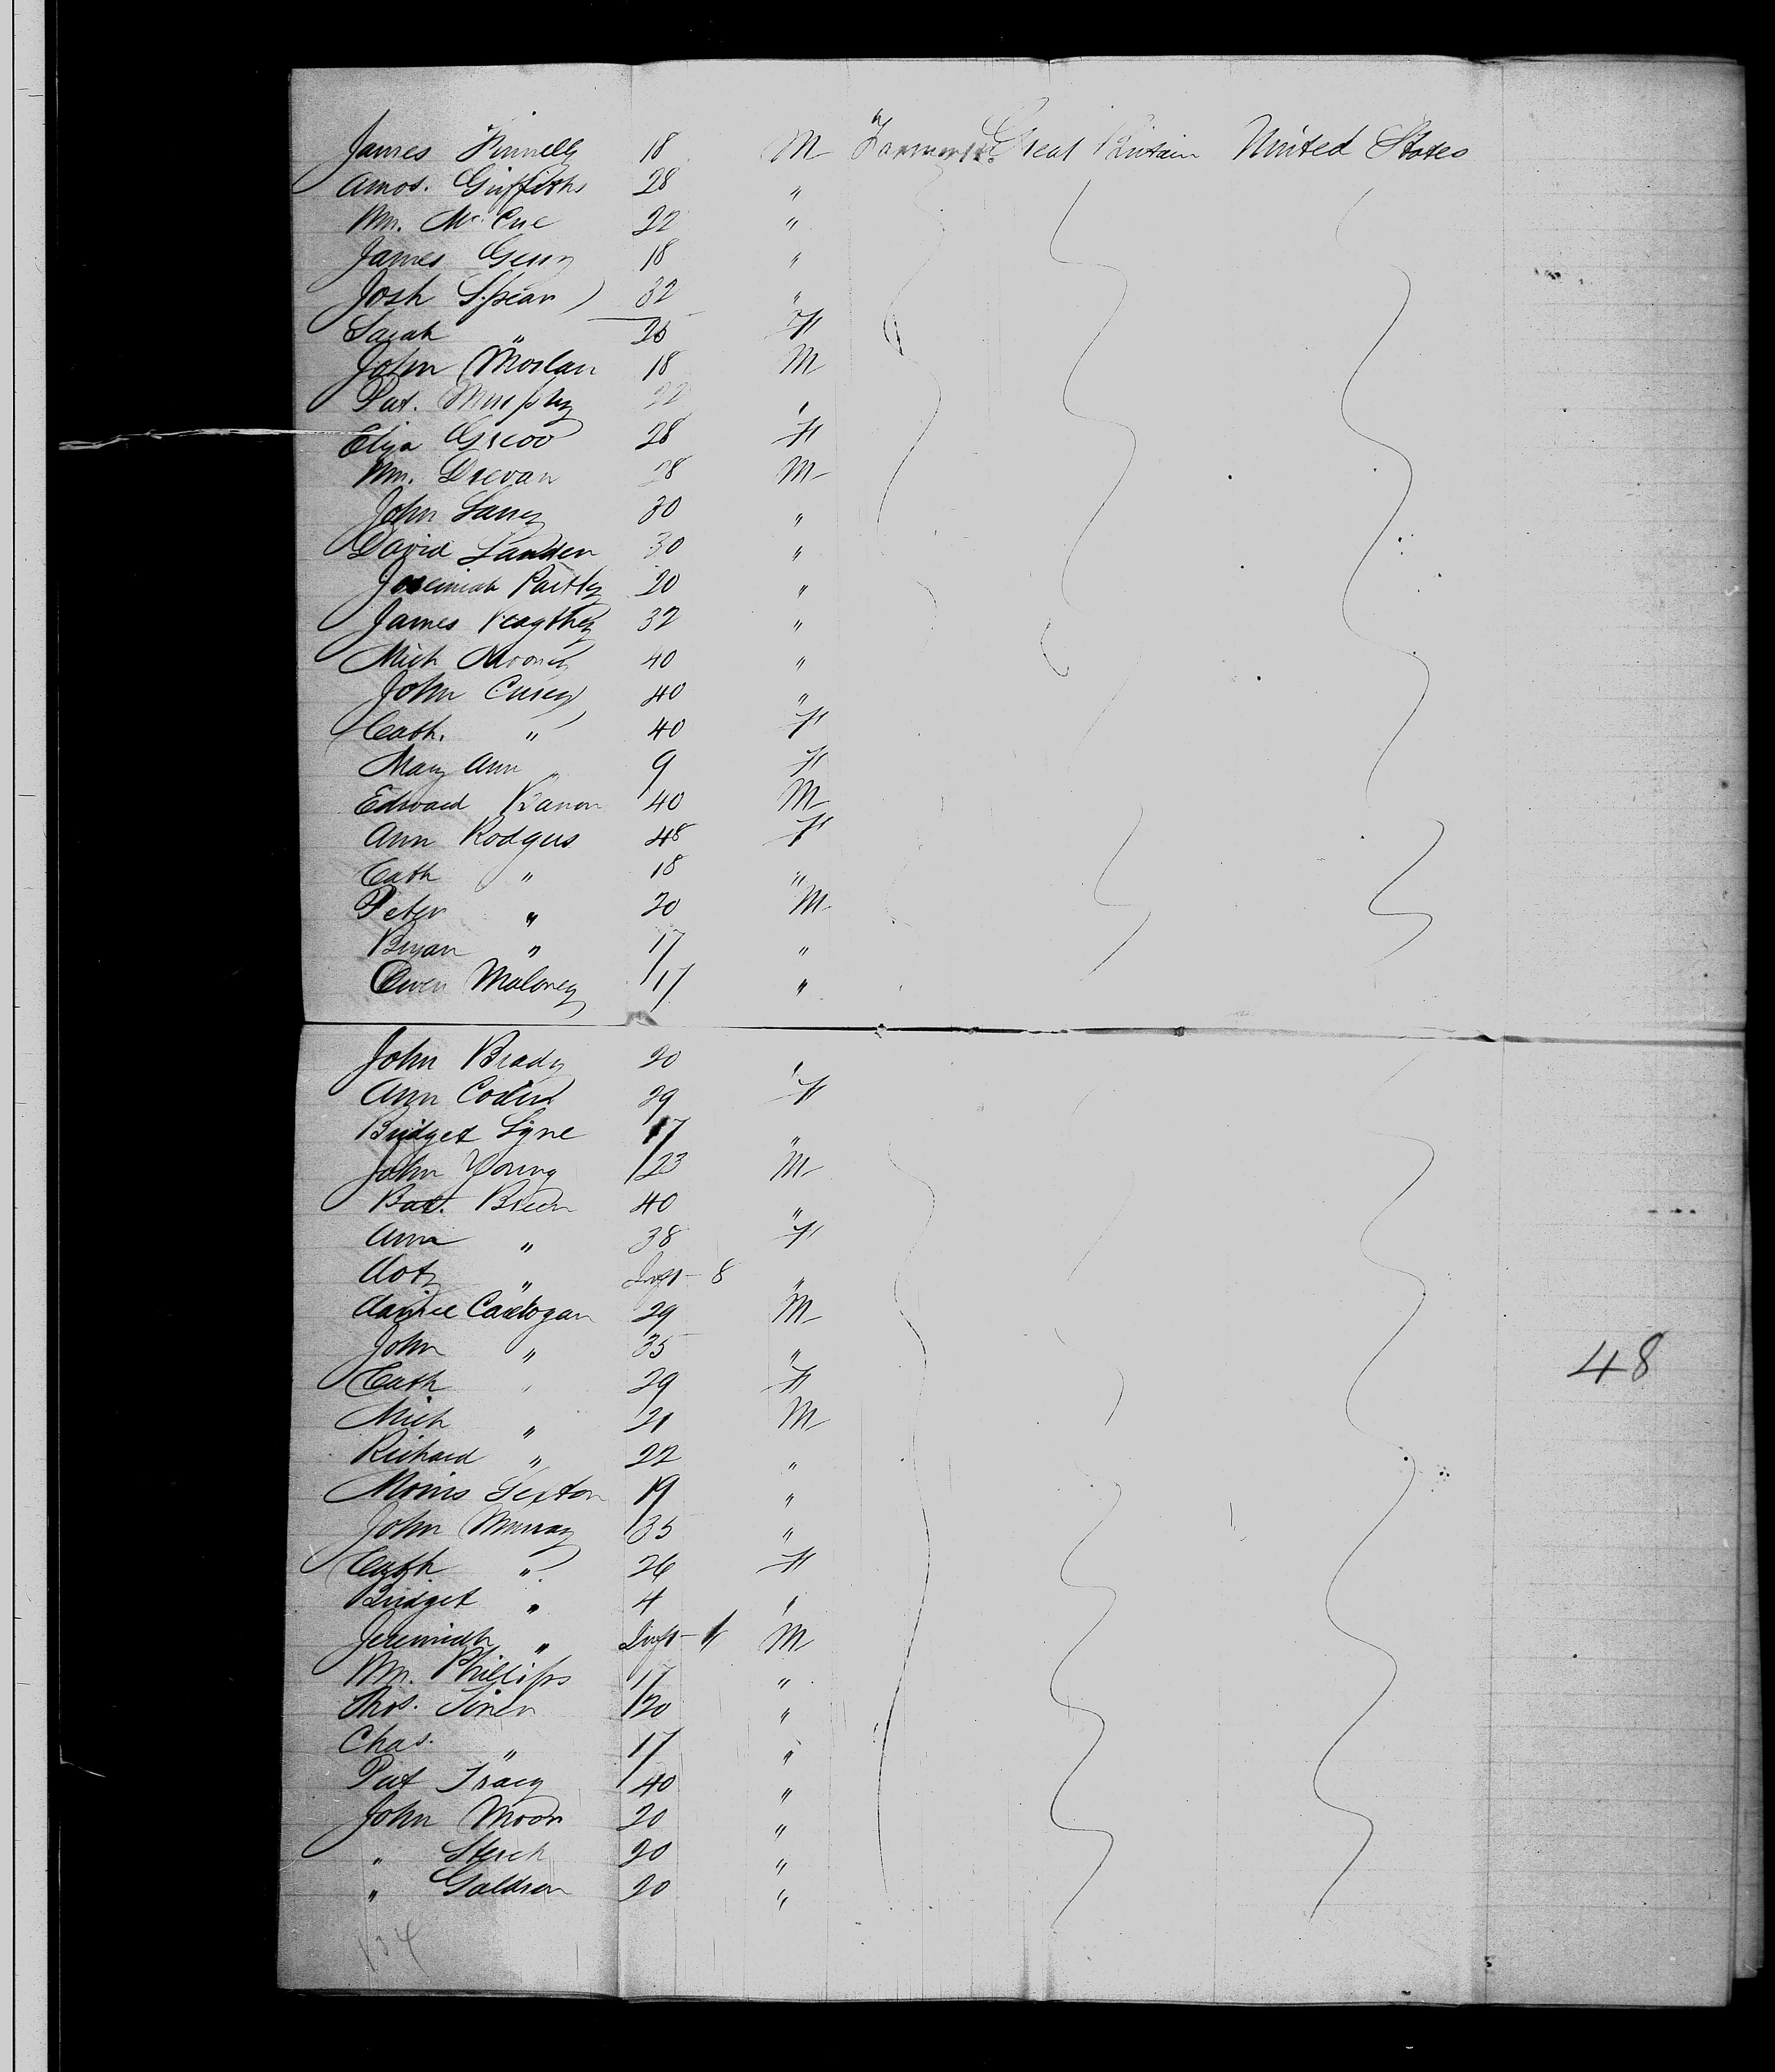 James Kinnelly 18 M Farmers Great Britain United States
Amos. Griffiths 28 "
Wm. McCue 22 "
James Geny 18 "
Josh Spear 32 "
Sarah " 26 F
John Moslan 18 M
Pat. Murphy 22 "
Eliza 28 F
Wm. Drevan 28 M
John Laney 30 "
David Landen 30 "
Jeremiah Partly 20 "
James Keagthey 32 "
Mich Mooney 40 "
John Cusey 40 "
Cath. " 40 F
Mary Ann " 9 F
Edward Banon 40 M
Ann Rodgers 48 F
Cath " 18 "
Peter " 20 M
Bryan " 17 "
Owen Maloney 17 "
John Brady 20 "
Ann 29 F
Bridget Lyne 17 "
John Young 23 M
Bat. Breen 40 "
Ann " 38 F
" Inft - 8 "
Cadogan 29 M
John " 35 "
Cath " 29 F
Mich " 21 M
Richard " 22 "
Morris Sexton 19 "
John Murray 35 "
Cath " 26 F
Bridget " 4 "
Jeremiah " Inft - M
Wm. Phillips 17 "
Thos. 20 "
Chas. " 17 "
Pat Tracy 40 "
John Moon 20 "
" 20 "
" Galdson 20 "
48
134